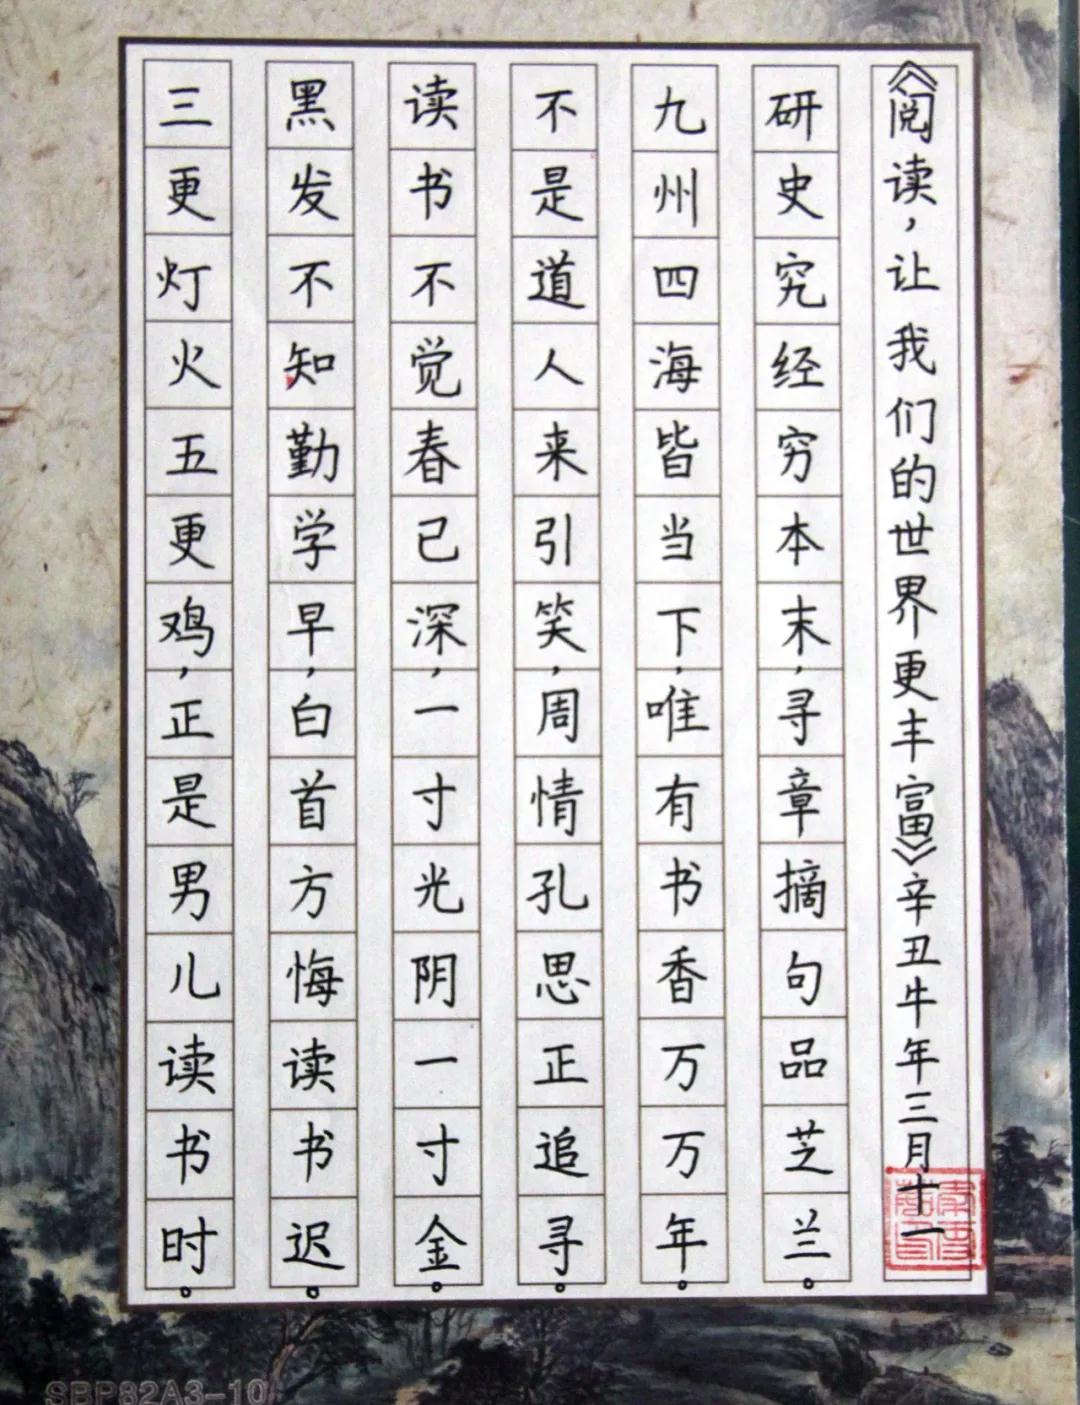 三更灯火五更鸡，正是男儿读书时。
黑发不知勤学早，白首方悔读书迟。
读书不觉春已深，一寸光阴一寸金。
不是道人来引笑，周情孔思正追寻。
九州四海皆当下，唯有书香万万年。
研史究经穷本末，寻章摘句品芝兰。
《阅读，让我们的世界更丰富》辛丑牛年三月十一
SBP82A3-10